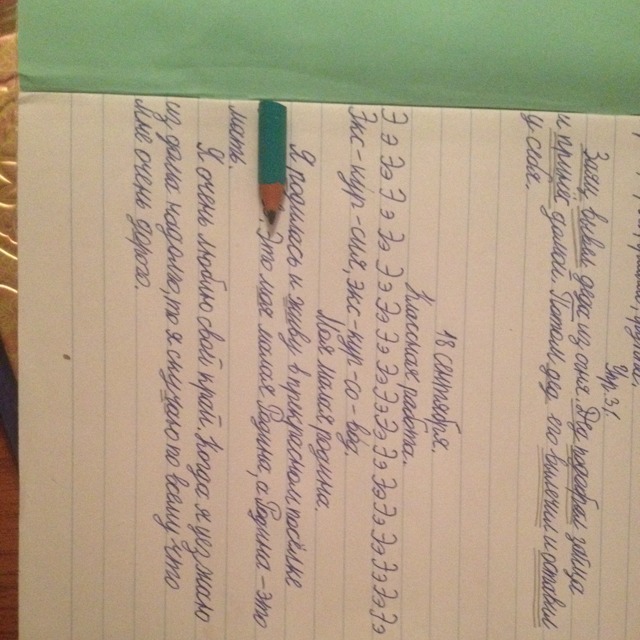 Упр. 31.
Заяц вывел деда из огня. Дед подобрал зайца
и принёс домой. Потом дед его вылечил и оставил
у себя.
18 сентября.
Классная работа.
Э э Ээ Ээ Ээ Ээ Ээ Ээ Ээ Ээ Ээ Ээ Ээ Ээ Ээ
Экс-кур-сия, экс-кур-со-вод.
Моя малая родина.
Я родилась и живу в прекрасном посёлке
Это моя малая Родина, а Родина - это
мать.
Я очень люблю свой край. Когда я уезжаю
из дома надолго, то я скучаю по всему что
мне очень дорого.